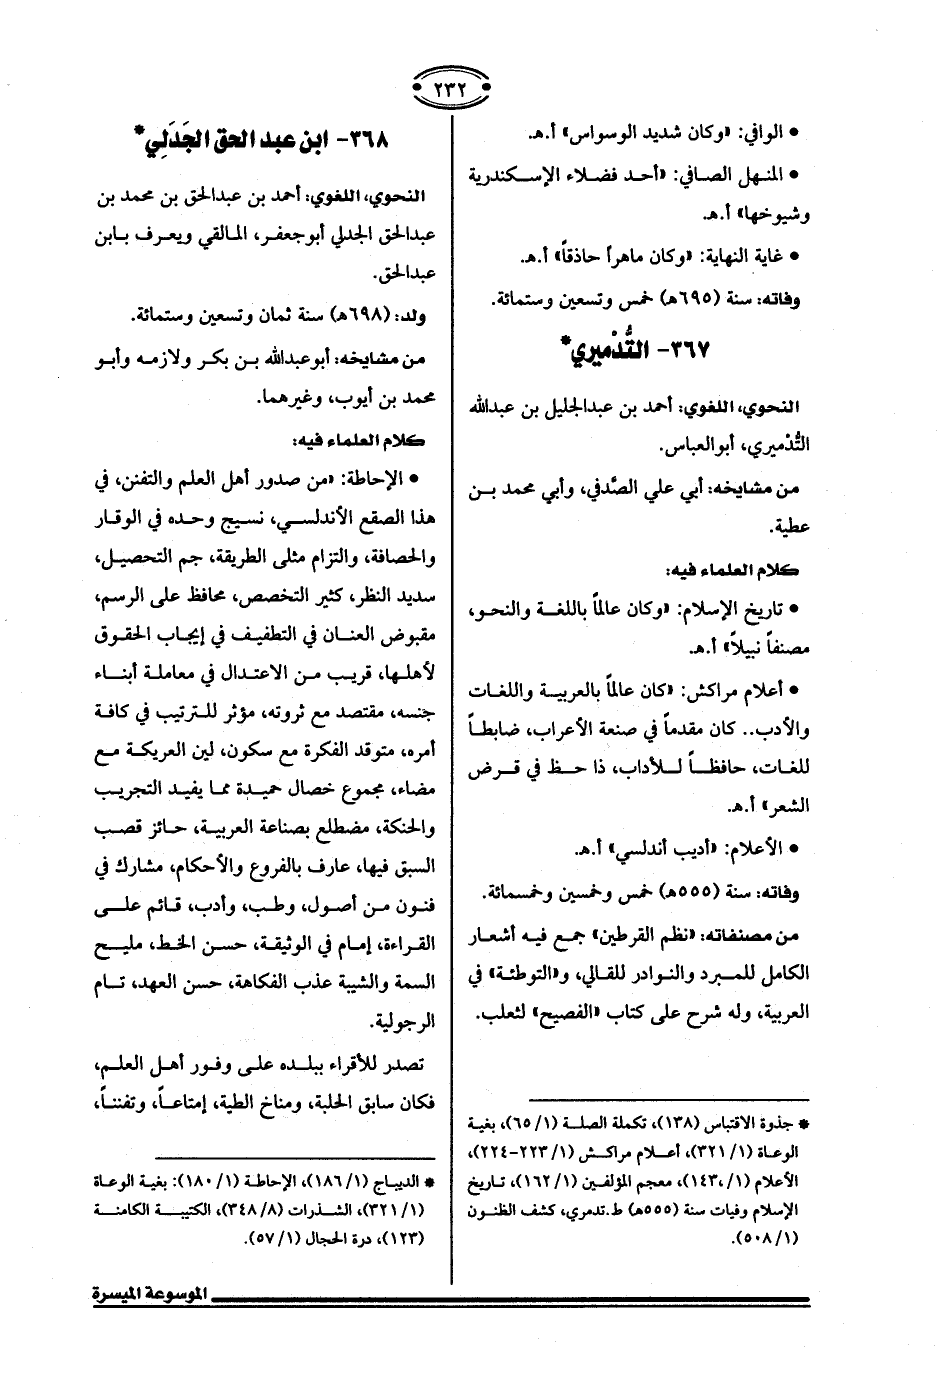 ٢٣٢
• الوافي: «وكان شديد الوسواس» أ.هـ.
• المنهل الصافي: «أحد فضلاء الإسكندرية
وشيوخها» أ.هـ.
• غاية النهاية: «وكان ماهراً حاذقاً» أ.هـ.
وفاته: سنة (٦٩٥هـ) خمس وتسعين وستمائة.
٣٦٧- التُّدْميري*
النحوي، اللغوي: أحمد بن عبدالجليل بن عبدالله
التُّدْميري، أبوالعباس.
من مشايخه: أبي علي الصَّدفي، وأبي محمد بن
عطية.
كلام العلماء فيه:
• تاريخ الإسلام: «وكان عالماً باللغة والنحو،
مصنفاً نبيلاً» أ.هـ.
• أعلام مراكش: «كان عالماً بالعربية واللغات
والأدب.. كان مقدماً في صنعة الأعراب، ضابطاً
للغات، حافظاً للأداب، ذا حظ في قرض
الشعر» أ.هـ.
• الأعلام: «أديب أندلسي» أ.هـ.
وفاته: سنة (٥٥٥هـ) خمس وخمسين وخمسمائة.
من مصنفاته: «نظم القرطين» جمع فيه أشعار
الكامل للمبرد والنوادر للقالي، و«التوطئة» في
العربية، وله شرح على كتاب «الفصيح» لثعلب.
* جذوة الاقتباس (١٣٨)، تكملة الصلة (٦٥/١)، بغية
الوعاة (٣٢١/١)، أعلام مراكش (٢٢٣/١-٢٢٤)،
الأعلام (١٤٣/١)، معجم المؤلفين (١٦٢/١)، تاريخ
الإسلام وفيات سنة (٥٥٥هـ) ط.تدمري، كشف الظنون
(٥٠٨/١).
٣٦٨- ابن عبد الحق الجَدَلِي*
النحوي، اللغوي: أحمد بن عبدالحق بن محمد بن
عبدالحق الجدلي أبوجعفر، المالقي ويعرف بابن
عبدالحق.
ولد: (٦٩٨هـ) سنة ثمان وتسعين وستمائة.
من مشايخه: أبوعبدالله بن بكر ولازمه وأبو
محمد بن أيوب، وغيرهما.
كلام العلماء فيه:
• الإحاطة: «من صدور أهل العلم والتفنن، في
هذا الصقع الأندلسي، نسيج وحده في الوقار
والحصافة، والتزام مثلى الطريقة، جم التحصيل،
سديد النظر، كثير التخصص، محافظ على الرسم،
مقبوض العنان في التطفيف في إيجاب الحقوق
لأهلها، قريب من الاعتدال في معاملة أبناء
جنسه، مقتصد مع ثروته، مؤثر للترتيب في كافة
أمره، متوقد الفكرة مع سكون، لين العريكة مع
مضاء، مجموع خصال حميدة مما يفيد التجريب
والحنكة، مضطلع بصناعة العربية، حائز قصب
السبق فيها، عارف بالفروع والأحكام، مشارك في
فنون من أصول، وطب، وأدب، قائم على
القراءة، إمام في الوثيقة، حسن الخط، مليح
السمة والشيبة عذب الفكاهة، حسن العهد، تام
الرجولية.
تصدر للأقراء ببلده على وفور أهل العلم،
فكان سابق الحلبة، ومناخ الطية، إمتاعاً، وتفنناً،
* الديباج (١٨٦/١)، الإحاطة (١٨٠/١): بغية الوعاة
(٣٢١/١)، الشذرات (٣٤٨/٨)، الكتيبة الكامنة
(١٢٣)، درة الحجال (٥٧/١).
الموسوعة الميسرة